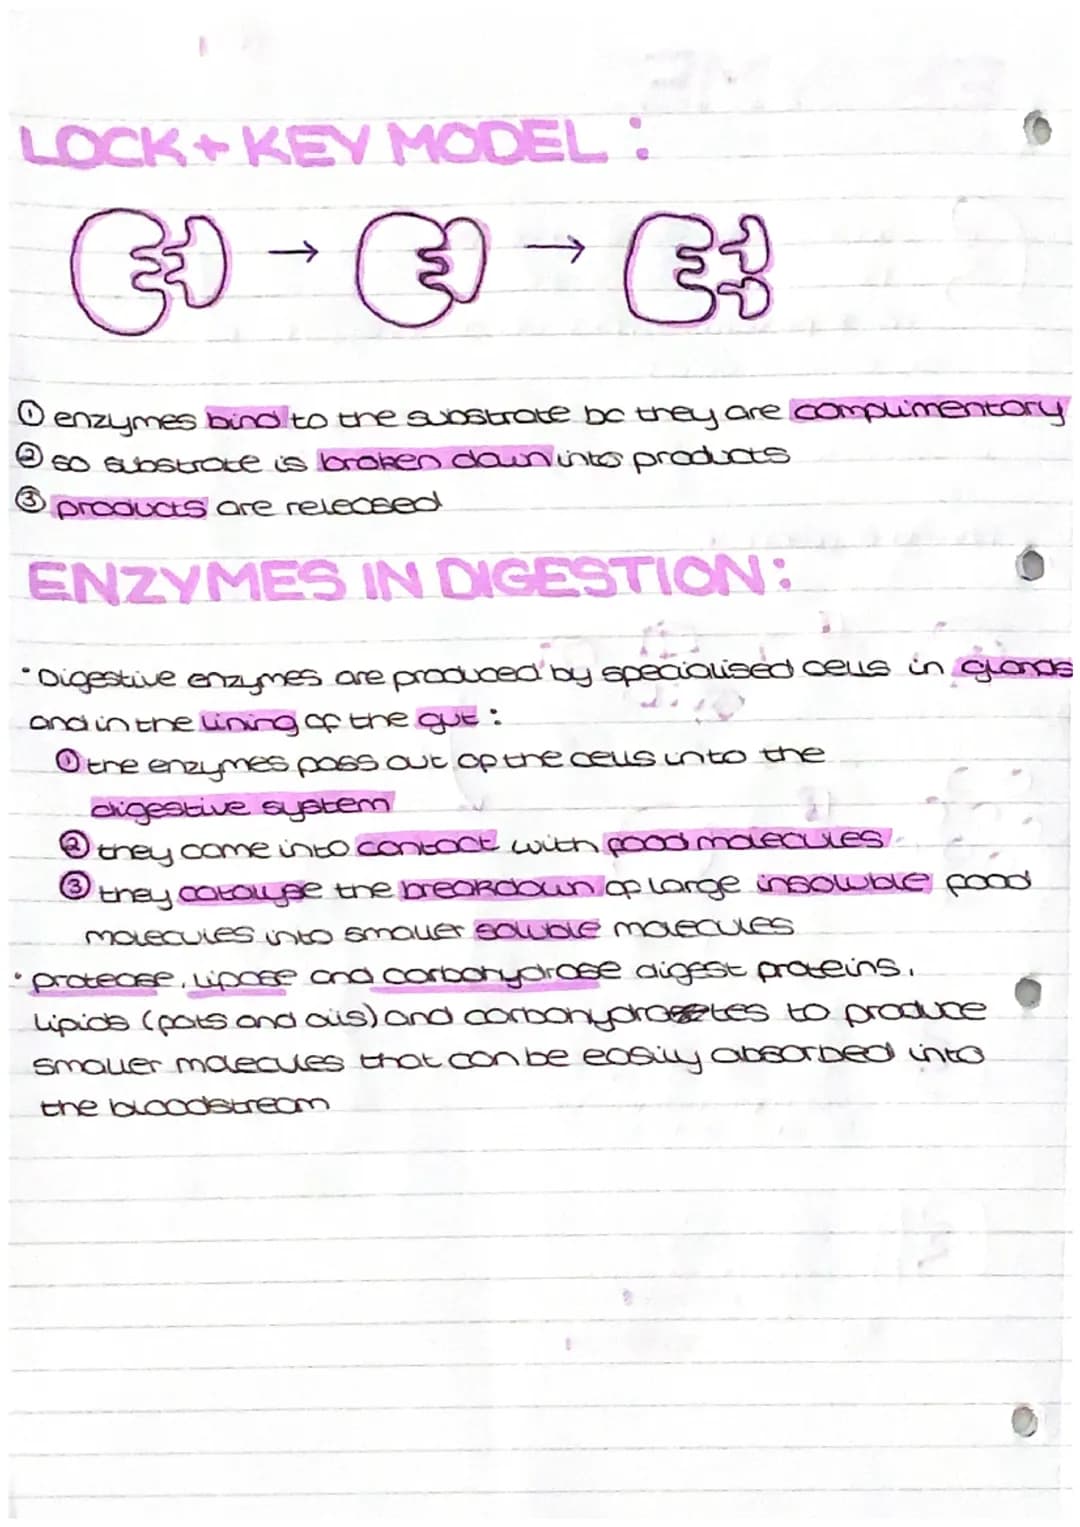 LOCK + KEY MODEL :
→ →
① enzymes bind to the substrate bc they are complimentary
② so substrate is broken down into products
③ products are released
ENZYMES IN DIGESTION:
• Digestive enzymes are produced by specialised cells in glands
and in the lining of the gut :
① the enzymes pass out of the cells into the
digestive system
② they come into contact with food molecules
③ they catalyse the breakdown of large insoluble food
molecules into smaller soluble molecules
• protease, lipase and carbohydrase digest proteins,
lipids (fats and oils) and carbohydrates to produce
smaller molecules that can be easily absorbed into
the bloodstream